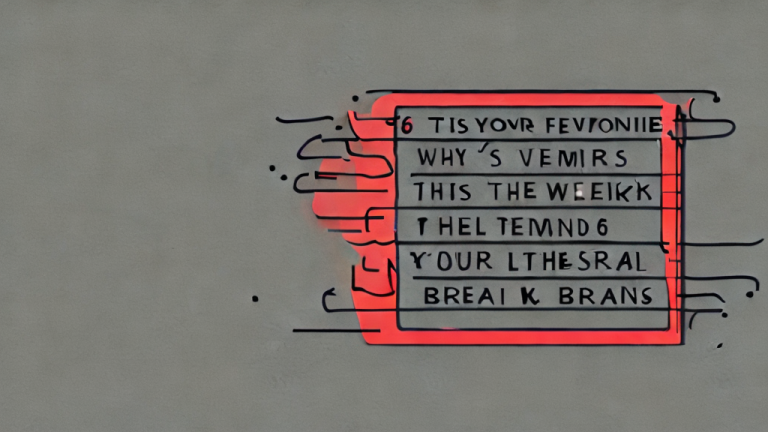 6 TIS YOVR FEVPONIIE
WHY'S VEMIRS
THIS THE WEEIKK
THEL TEMND6
YOUR LTHESRAL
BREAI K BRANS